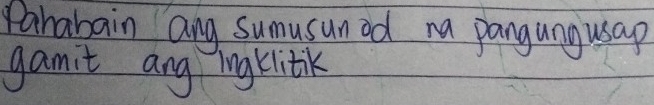 Pahabain ang sumusunod na pangungusap
gamit ang ingklitik